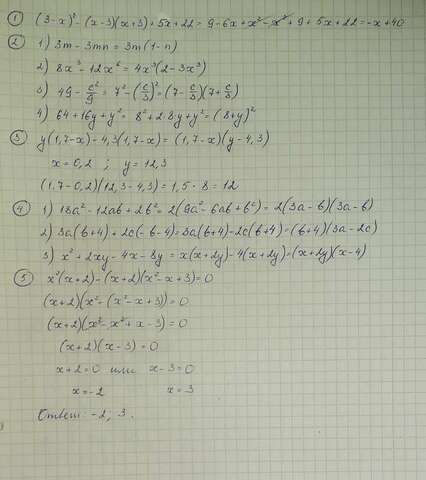 ① (3-x)² - (x-3)(x+3) + 5x + 22 = 9 - 6x + x² - x² + 9 + 5x + 22 = -x + 40
② 1) 3m - 3mn = 3m(1-n)
2) 8x³ - 12x⁶ = 4x³(2-3x³)
3) 49 - c²/9 = 7² - (c/3)² = (7 - c/3)(7 + c/3)
4) 64 + 16y + y² = 8² + 2·8y + y² = (8+y)²
③ y(1,7-x) - 4,3(1,7-x) = (1,7-x)(y-4,3)
x = 0,2 ; y = 12,3
(1,7-0,2)(12,3-4,3) = 1,5 · 8 = 12
④ 1) 18a² - 12ab + 2b² = 2(9a² - 6ab + b²) = 2(3a-b)(3a-b)
2) 3a(b+4) + 2c(-b-4) = 3a(b+4) - 2c(b+4) = (b+4)(3a-2c)
3) x² + 2xy - 4x - 8y = x(x+2y) - 4(x+2y) = (x+2y)(x-4)
⑤ x²(x+2) - (x+2)(x²-x+3) = 0
(x+2)(x² - (x²-x+3)) = 0
(x+2)(x² - x² + x - 3) = 0
(x+2)(x-3) = 0
x+2 = 0 или x-3 = 0
x = -2 x = 3
Ответ: -2, 3.